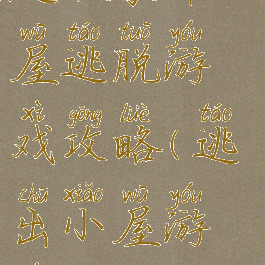 wū táo tuō yóu
屋逃脱游
xì gōng lüè táo
戏攻略(逃
chū xiǎo wū yóu
出小屋游